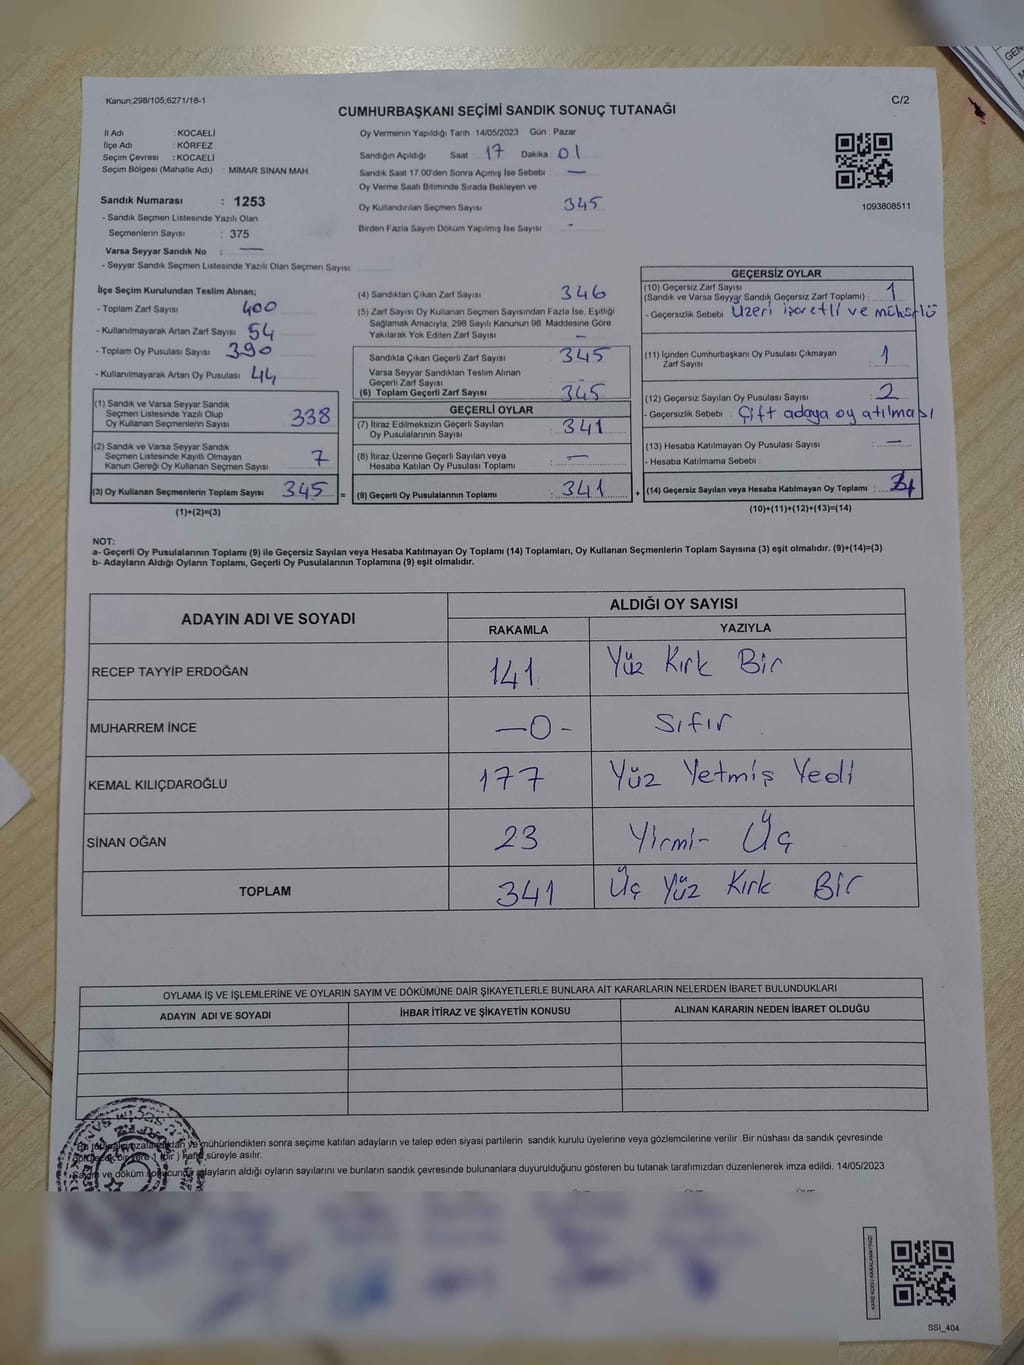 Kanun:298/105;6271/18-1
C/2
CUMHURBAŞKANI SEÇİMİ SANDIK SONUÇ TUTANAĞI
İl Adı : KOCAELİ
İlçe Adı : KÖRFEZ
Seçim Çevresi : KOCAELİ
Seçim Bölgesi (Mahalle Adı) : MİMAR SİNAN MAH.
Sandık Numarası : 1253
- Sandık Seçmen Listesinde Yazılı Olan
Seçmenlerin Sayısı : 375
Varsa Seyyar Sandık No : —
- Seyyar Sandık Seçmen Listesinde Yazılı Olan Seçmen Sayısı
Oy Vermenin Yapıldığı Tarih : 14/05/2023 Gün : Pazar
Sandığın Açıldığı Saat 17 Dakika 01
Sandık Saat 17:00'den Sonra Açımış İse Sebebi : —
Oy Verme Saati Bitiminde Sırada Bekleyen ve
Oy Kullandırılan Seçmen Sayısı 345
Birden Fazla Sayım Döküm Yapılmış İse Sayısı -
1093808511
İlçe Seçim Kurulundan Teslim Alınan;
- Toplam Zarf Sayısı 400
- Kullanılmayarak Artan Zarf Sayısı 54
- Toplam Oy Pusulası Sayısı 390
- Kullanılmayarak Artan Oy Pusulası 44
(1) Sandık ve Varsa Seyyar Sandık
Seçmen Listesinde Yazılı Olup
Oy Kullanan Seçmenlerin Sayısı 338
(2) Sandık ve Varsa Seyyar Sandık
Seçmen Listesinde Kayıtlı Olmayan
Kanun Gereği Oy Kullanan Seçmen Sayısı 7
(3) Oy Kullanan Seçmenlerin Toplam Sayısı 345 =
(1)+(2)=(3)
(4) Sandıktan Çıkan Zarf Sayısı 346
(5) Zarf Sayısı Oy Kullanan Seçmen Sayısından Fazla İse, Eşitliği
Sağlamak Amacıyla, 298 Sayılı Kanunun 98. Maddesine Göre
Yakılarak Yok Edilen Zarf Sayısı —
Sandıkta Çıkan Geçerli Zarf Sayısı 345
Varsa Seyyar Sandıktan Teslim Alınan
Geçerli Zarf Sayısı
(6) Toplam Geçerli Zarf Sayısı 345
GEÇERLİ OYLAR
(7) İtiraz Edilmeksizin Geçerli Sayılan
Oy Pusulalarının Sayısı 341
(8) İtiraz Üzerine Geçerli Sayılan veya
Hesaba Katılan Oy Pusulası Toplamı —
(9) Geçerli Oy Pusulalarının Toplamı 341 +
GEÇERSİZ OYLAR
(10) Geçersiz Zarf Sayısı
(Sandık ve Varsa Seyyar Sandık Geçersiz Zarf Toplamı) : 1
- Geçersizlik Sebebi : Üzeri işaretli ve mühürlü
(11) İçinden Cumhurbaşkanı Oy Pusulası Çıkmayan
Zarf Sayısı 1
(12) Geçersiz Sayılan Oy Pusulası Sayısı : 2
- Geçersizlik Sebebi : Çift adaya oy atılması
(13) Hesaba Katılmayan Oy Pusulası Sayısı : —
- Hesaba Katılmama Sebebi :
(14) Geçersiz Sayılan veya Hesaba Katılmayan Oy Toplamı : 4
(10)+(11)+(12)+(13)=(14)
NOT:
a- Geçerli Oy Pusulalarının Toplamı (9) ile Geçersiz Sayılan veya Hesaba Katılmayan Oy Toplamı (14) Toplamları, Oy Kullanan Seçmenlerin Toplam Sayısına (3) eşit olmalıdır. (9)+(14)=(3)
b- Adayların Aldığı Oyların Toplamı, Geçerli Oy Pusulalarının Toplamına (9) eşit olmalıdır.
ADAYIN ADI VE SOYADI
ALDIĞI OY SAYISI
RAKAMLA YAZIYLA
RECEP TAYYİP ERDOĞAN 141 Yüz Kırk Bir
MUHARREM İNCE —0- Sıfır
KEMAL KILIÇDAROĞLU 177 Yüz Yetmiş Yedi
SİNAN OĞAN 23 Yirmi Üç
TOPLAM 341 Üç Yüz Kırk Bir
OYLAMA İŞ VE İŞLEMLERİNE VE OYLARIN SAYIM VE DÖKÜMÜNE DAİR ŞİKAYETLERLE BUNLARA AİT KARARLARIN NELERDEN İBARET BULUNDUKLARI
ADAYIN ADI VE SOYADI İHBAR İTİRAZ VE ŞİKAYETİN KONUSU ALINAN KARARIN NEDEN İBARET OLDUĞU
mühürlendikten sonra seçime katılan adayların ve talep eden siyasi partilerin sandık kurulu üyelerine veya gözlemcilerine verilir. Bir nüshası da sandık çevresinde
süreyle asılır.
adayların aldığı oyların sayılarını ve bunların sandık çevresinde bulunanlara duyurulduğunu gösteren bu tutanak tarafımızdan düzenlenerek imza edildi. 14/05/2023
SSI_404